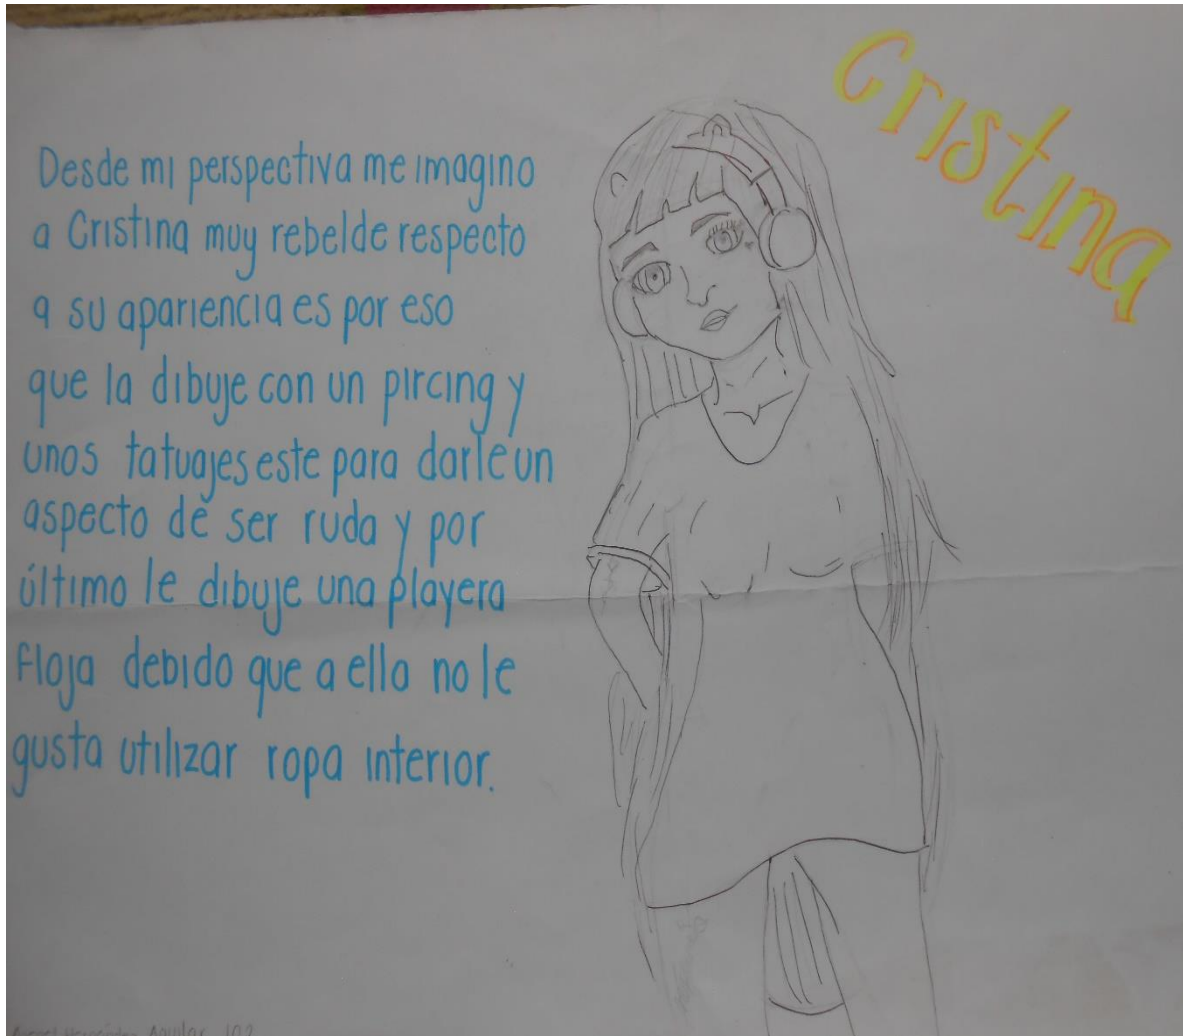 Cristina
Desde mi perspectiva me imagino
a Cristina muy rebelde respecto
a su apariencia es por eso
que la dibuje con un pircing y
unos tatuajes este para darle un
aspecto de ser ruda y por
último le dibuje una playera
floja debido que a ella no le
gusta utilizar ropa interior.
Hernández Aguilar 102